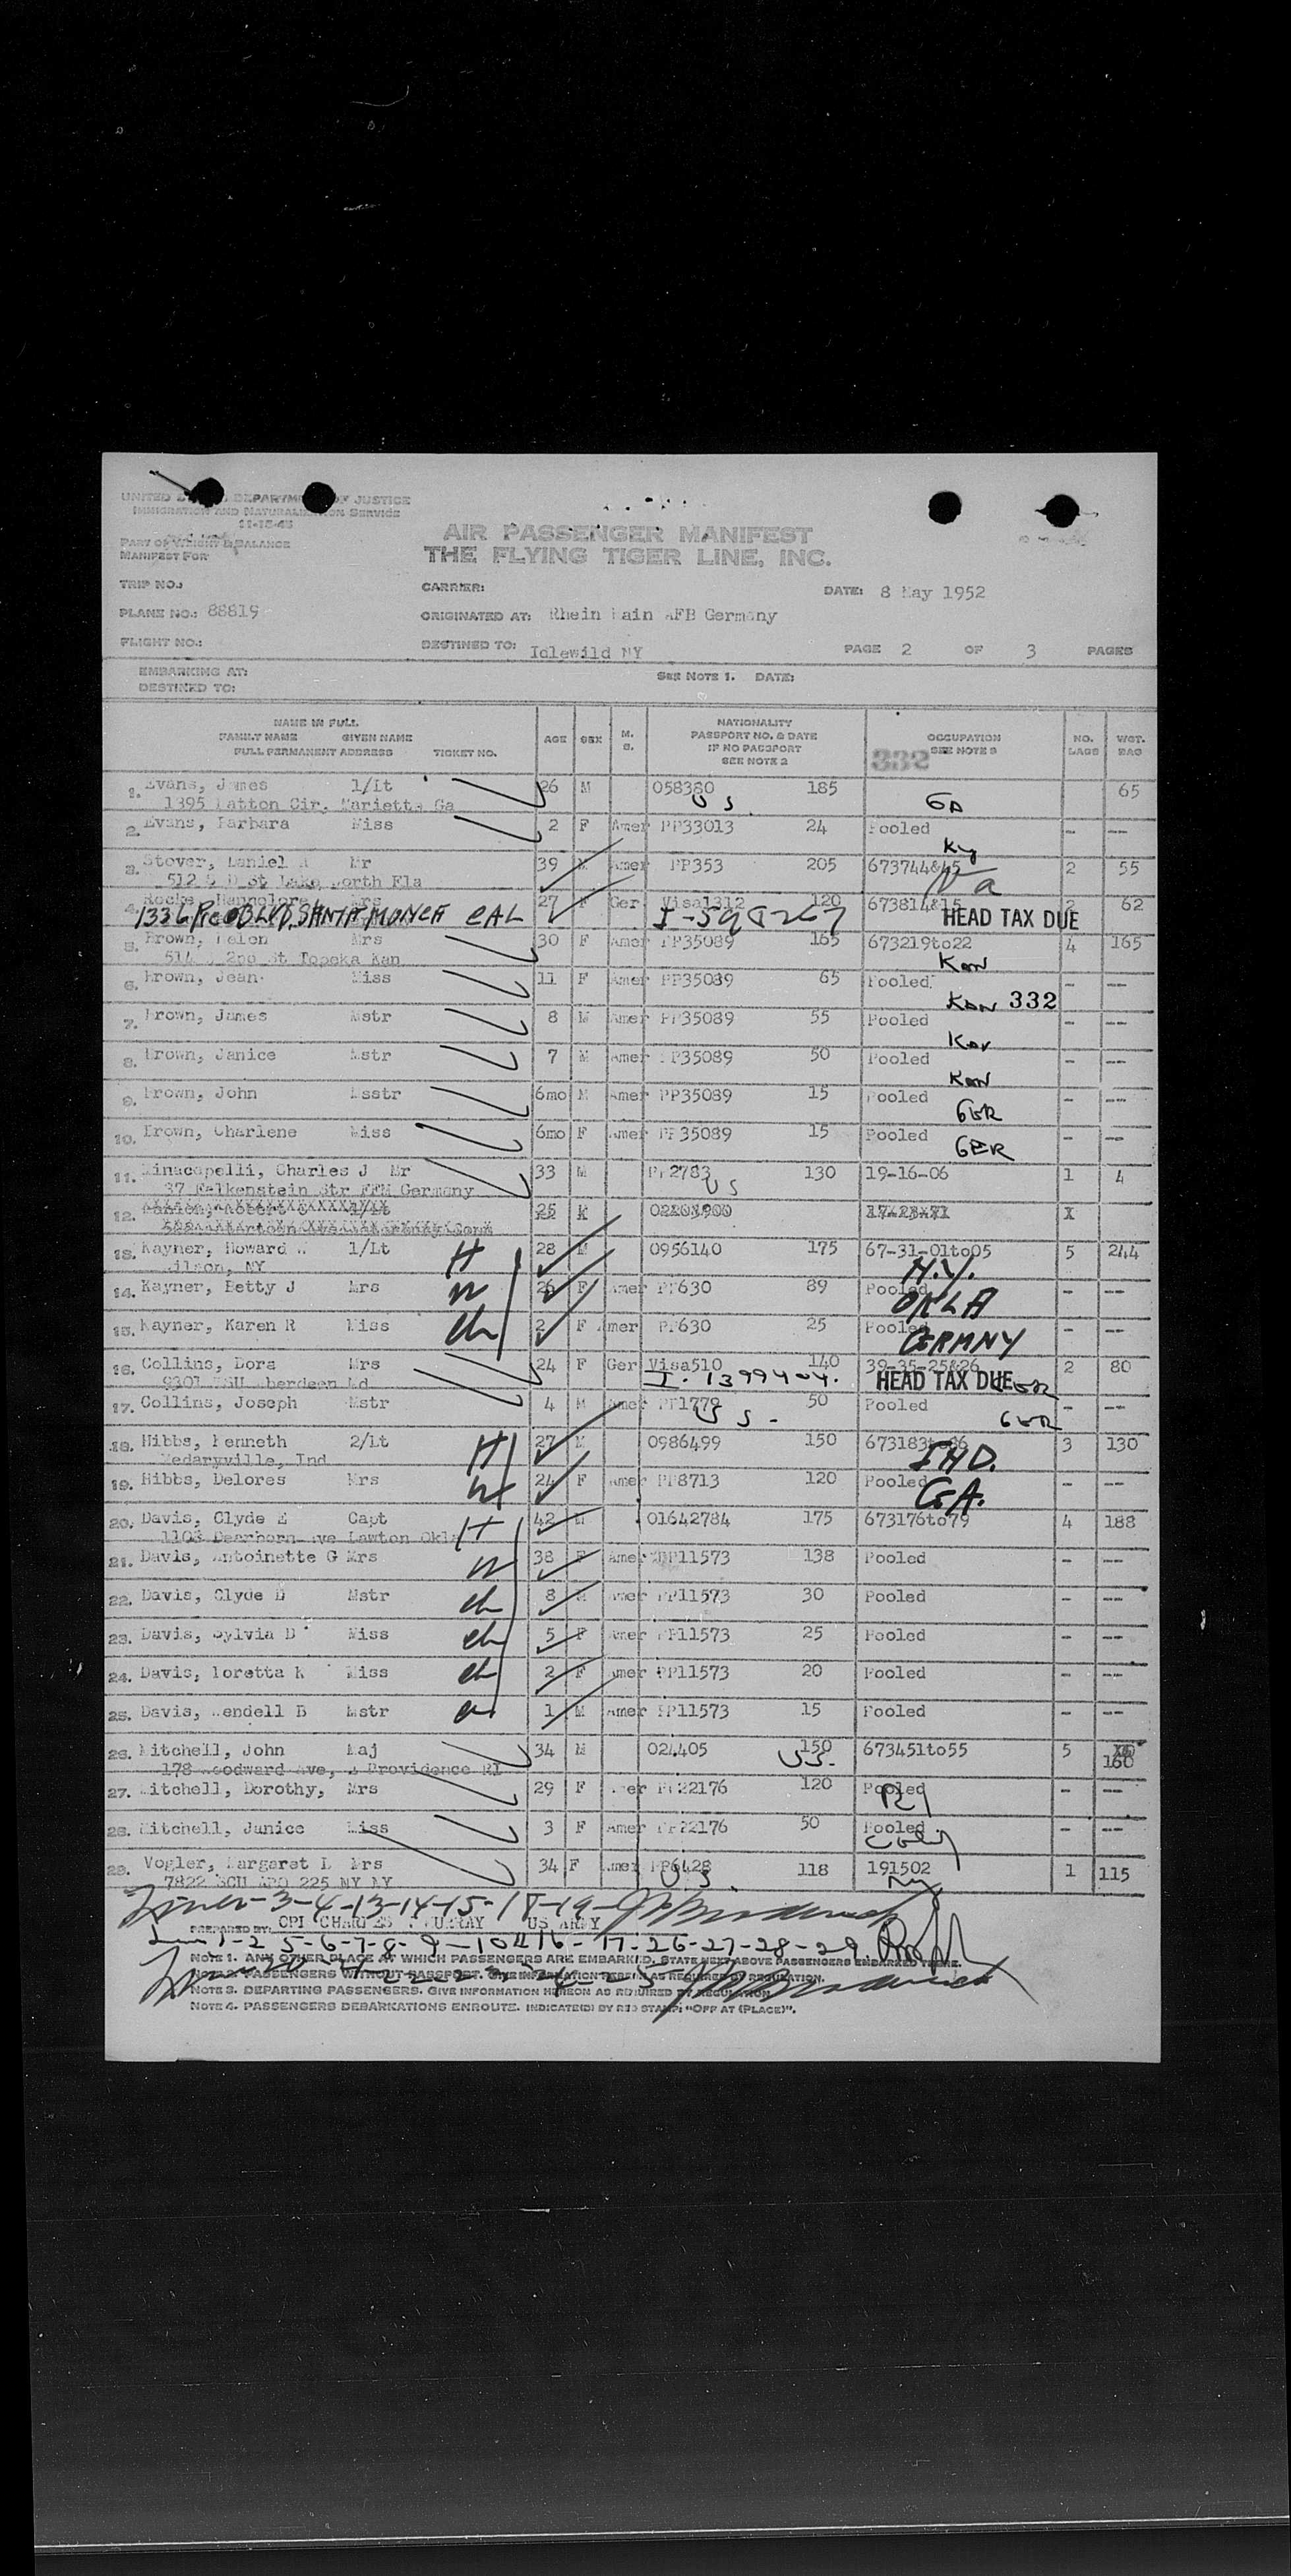 UNITED DEPARTM OF JUSTICE
IMMIGRATION AND NATURALIZATION SERVICE
11-15-43
PART OF WEIGHT & BALANCE
MANIFEST FOR
AIR PASSENGER MANIFEST
THE FLYING TIGER LINE, INC.
TRIP NO.: CARRIER: DATE: 8 May 1952
PLANE NO.: 88819 ORIGINATED AT: Rhein Main AFB Germany
FLIGHT NO.: DESTINED TO: Idlewild NY PAGE 2 OF 3 PAGES
EMBARKING AT: SEE NOTE 1. DATE:
DESTINED TO:
NAME IN FULL
FAMILY NAME GIVEN NAME
FULL PERMANENT ADDRESS TICKET NO. AGE SEX M. S. NATIONALITY PASSPORT NO. & DATE IF NO PASSPORT SEE NOTE 2 OCCUPATION SEE NOTE 3 NO. WGT. BAG
332
1. Evans, James 1/Lt 26 M 058380 185 65
1395 Patton Cir, Marietta Ga US GA
2. Evans, Barbara Miss 2 F Amer PP33013 24 Pooled -- ---
Ky
3. Stover, Daniel Mr 39 M Amer PP353 205 673744&45 2 55
512 S D St Lake Worth Fla
4. Mrs 27 F Ger Visa1312 120 673814&15 2 62
1336 BLVD. SANTA MONCA CAL HEAD TAX DUE
5. Brown, Helen Mrs 30 F Amer PP35089 165 673219to22 4 165
2nd St Topeka Kan Kan
6. Brown, Jean Miss 11 F Amer PP35089 65 Pooled - ---
Kan 332
7. Brown, James Mstr 8 M Amer PP35089 55 Pooled - ---
Kan
8. Brown, Janice Mstr 7 M Amer PP35089 50 Pooled - ---
Kan
9. Brown, John Msstr 6mo M Amer PP35089 15 Pooled - ---
GER
10. Brown, Charlene Miss 6mo F Amer PP35089 15 Pooled - --
GER
11. Minacapelli, Charles J Mr 33 M PP2783 130 19-16-06 1 4
37 Falkenstein Str FFM Germany US
12. 25 M X
13. Kayner, Howard 1/Lt H 28 M 0956140 175 67-31-01to05 5 244
Wilson, NY N.Y.
14. Kayner, Betty J Mrs W 26 F Amer PP630 89 Pooled - ---
OKLA
15. Kayner, Karen R Miss ch 2 F Amer PP630 25 Pooled - --
GERMNY
16. Collins, Dora Mrs 24 F Ger Visa510 140 39-35-25&26 2 80
9301 TSU Aberdeen Md HEAD TAX DUE GER
17. Collins, Joseph Mstr 4 M Amer PP1779 50 Pooled - ---
US GER
18. Hibbs, Kenneth 2/Lt H 27 M 0986499 150 673183to86 3 130
Medaryville, Ind IND.
19. Hibbs, Delores Mrs W 24 F Amer PP8713 120 Pooled - ---
GA.
20. Davis, Clyde E Capt H 42 M 01642784 175 673176to79 4 188
1103 Dearborn Ave Lawton Okla
21. Davis, Antoinette G Mrs W 38 F Amer PP11573 138 Pooled - ---
22. Davis, Clyde D Mstr ch 8 M Amer PP11573 30 Pooled - ---
23. Davis, Sylvia D Miss ch 5 F Amer PP11573 25 Pooled - ---
24. Davis, Loretta K Miss ch 2 F Amer PP11573 20 Pooled - ---
25. Davis, Wendell B Mstr ch 1 M Amer PP11573 15 Pooled - ---
26. Mitchell, John Maj 34 M 024405 150 673451to55 5 160
178 Woodward Ave, E Providence RI US
27. Mitchell, Dorothy, Mrs 29 F Amer PP22176 120 Pooled - ---
RI
28. Mitchell, Janice Miss 3 F Amer PP22176 50 Pooled - ---
29. Vogler, Margaret L Mrs 34 F Amer PP6428 118 191502 1 115
7822 SCU APO 225 NY NY US. NY
3-4-13-14-15-18-19-
PREPARED BY: CPL CHARLES MURRAY US ARMY
1-2 5-6-7-8-9-10&16-17-26-27-28-29.
NOTE 1. ANY OTHER PLACE AT WHICH PASSENGERS ARE EMBARKED, STATE NEXT ABOVE PASSENGERS EMBARKED THERE.
NOTE 2. PASSENGERS WITHOUT PASSPORT. GIVE INFORMATION HEREIN AS REQUIRED BY REGULATION.
NOTE 3. DEPARTING PASSENGERS. GIVE INFORMATION HEREON AS REQUIRED BY REGULATION
NOTE 4. PASSENGERS DEBARKATIONS ENROUTE. INDICATE(D) BY RED STAMP: "OFF AT (PLACE)".